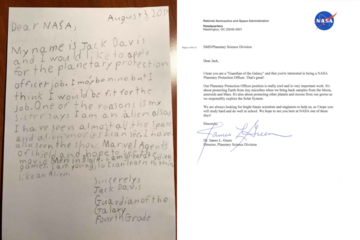 August 3, 2017
Dear NASA,
My name is Jack Davis
and I would like to apply
for the planetary protection
officer job. I may be nine but I
think I would be fit for the
job. One of the reasons is my
sister says I am an alien also
I have seen almost all the space
and alien movies I can see. I have
also seen the show Marvel Agents
of Shield and hope to see the
movie Men in Black. I am great at video
games. I am young, so I can learn to think
like an Alien
Sincerely,
Jack Davis
Guardian of the
Galaxy
Fourth Grade
National Aeronautics and Space Administration
Headquarters
Washington, DC 20546-0001
NASA
SMD/Planetary Science Division
Dear Jack,
I hear you are a "Guardian of the Galaxy" and that you're interested in being a NASA
Planetary Protection Officer. That's great!
Our Planetary Protection Officer position is really cool and is very important work. It's
about protecting Earth from tiny microbes when we bring back samples from the Moon,
asteroids and Mars. It's also about protecting other planets and moons from our germs as
we responsibly explore the Solar System.
We are always looking for bright future scientists and engineers to help us, so I hope you
will study hard and do well in school. We hope to see you here at NASA one of these
days!
Sincerely,
James L. Green
Dr. James L. Green
Director, Planetary Science Division